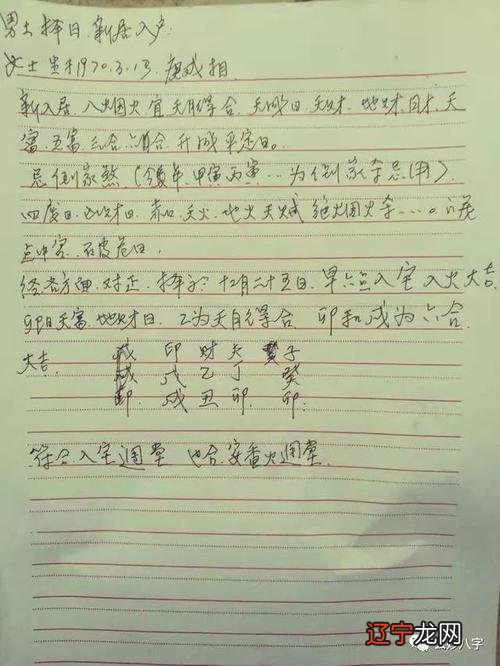 男士择日.新居入户:
女士生于1970.3.13.庚戌相.
新入居.入烟火宜天月德合.天成日.天财.地财.月财.天
富.五富.三合六合.开成平定日。
忌倒家煞(甲寅丙寅...为倒家杀忌用).
四废日.赤口.天火.地火天贼绝烟火杀....
占中宫.
经各方面对正.择于:十二月二十五日.早六点入宅入火大吉.
卯日天富.地财日.乙为天月德合.卯和戌为六合.
大吉: 印财夫子
戊乙丁癸
戌丑卯卯:
符合.入宅周堂 也合.安香火周堂.
八字
辽宁龙网